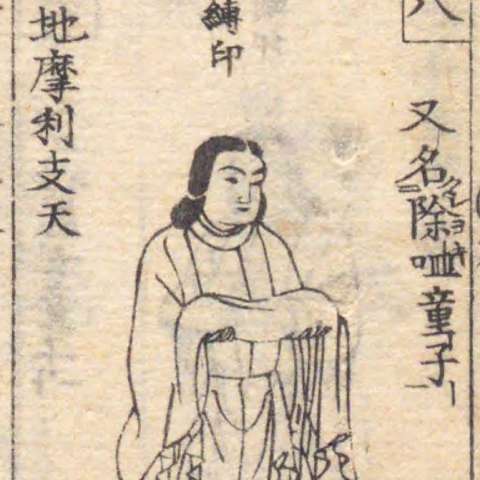 八
又名除童子
縛印
地摩利支天